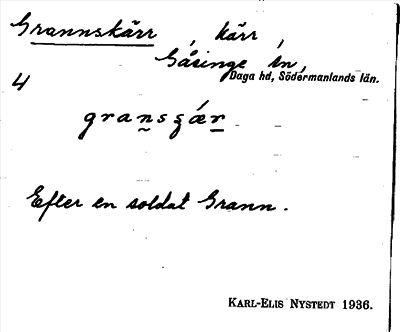 Grannskärr, kärr,
Gåsinge sn,
Daga hd, Södermanlands län.
4
gransꞩǽr
Efter en soldat Grann.
KARL-ELIS NYSTEDT 1936.